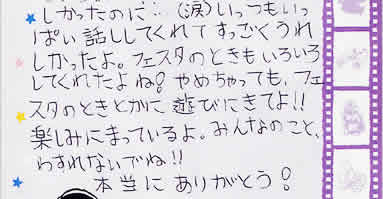 しかったのに…(涙)いっつもいっ
ぱい話ししてくれてすっごくうれ
しかったよ。フェスタのときもいろいろ
してくれたよね!やめちゃっても、フェ
スタのときとかに遊びにきてよ!!
楽しみにまっているよ。みんなのこと、
わすれないでね!!
本当にありがとう!